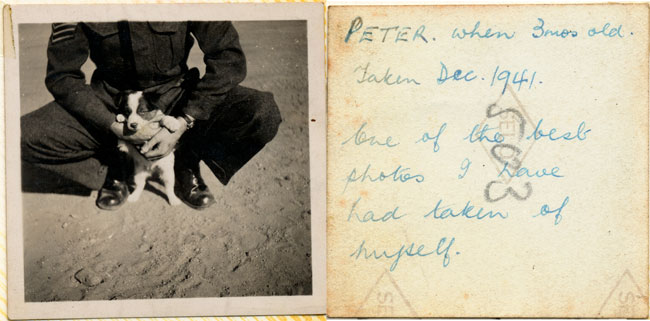 PETER. when 3mos old.
Taken Dec. 1941.
One of the best
photos I have
had taken of
myself.
503